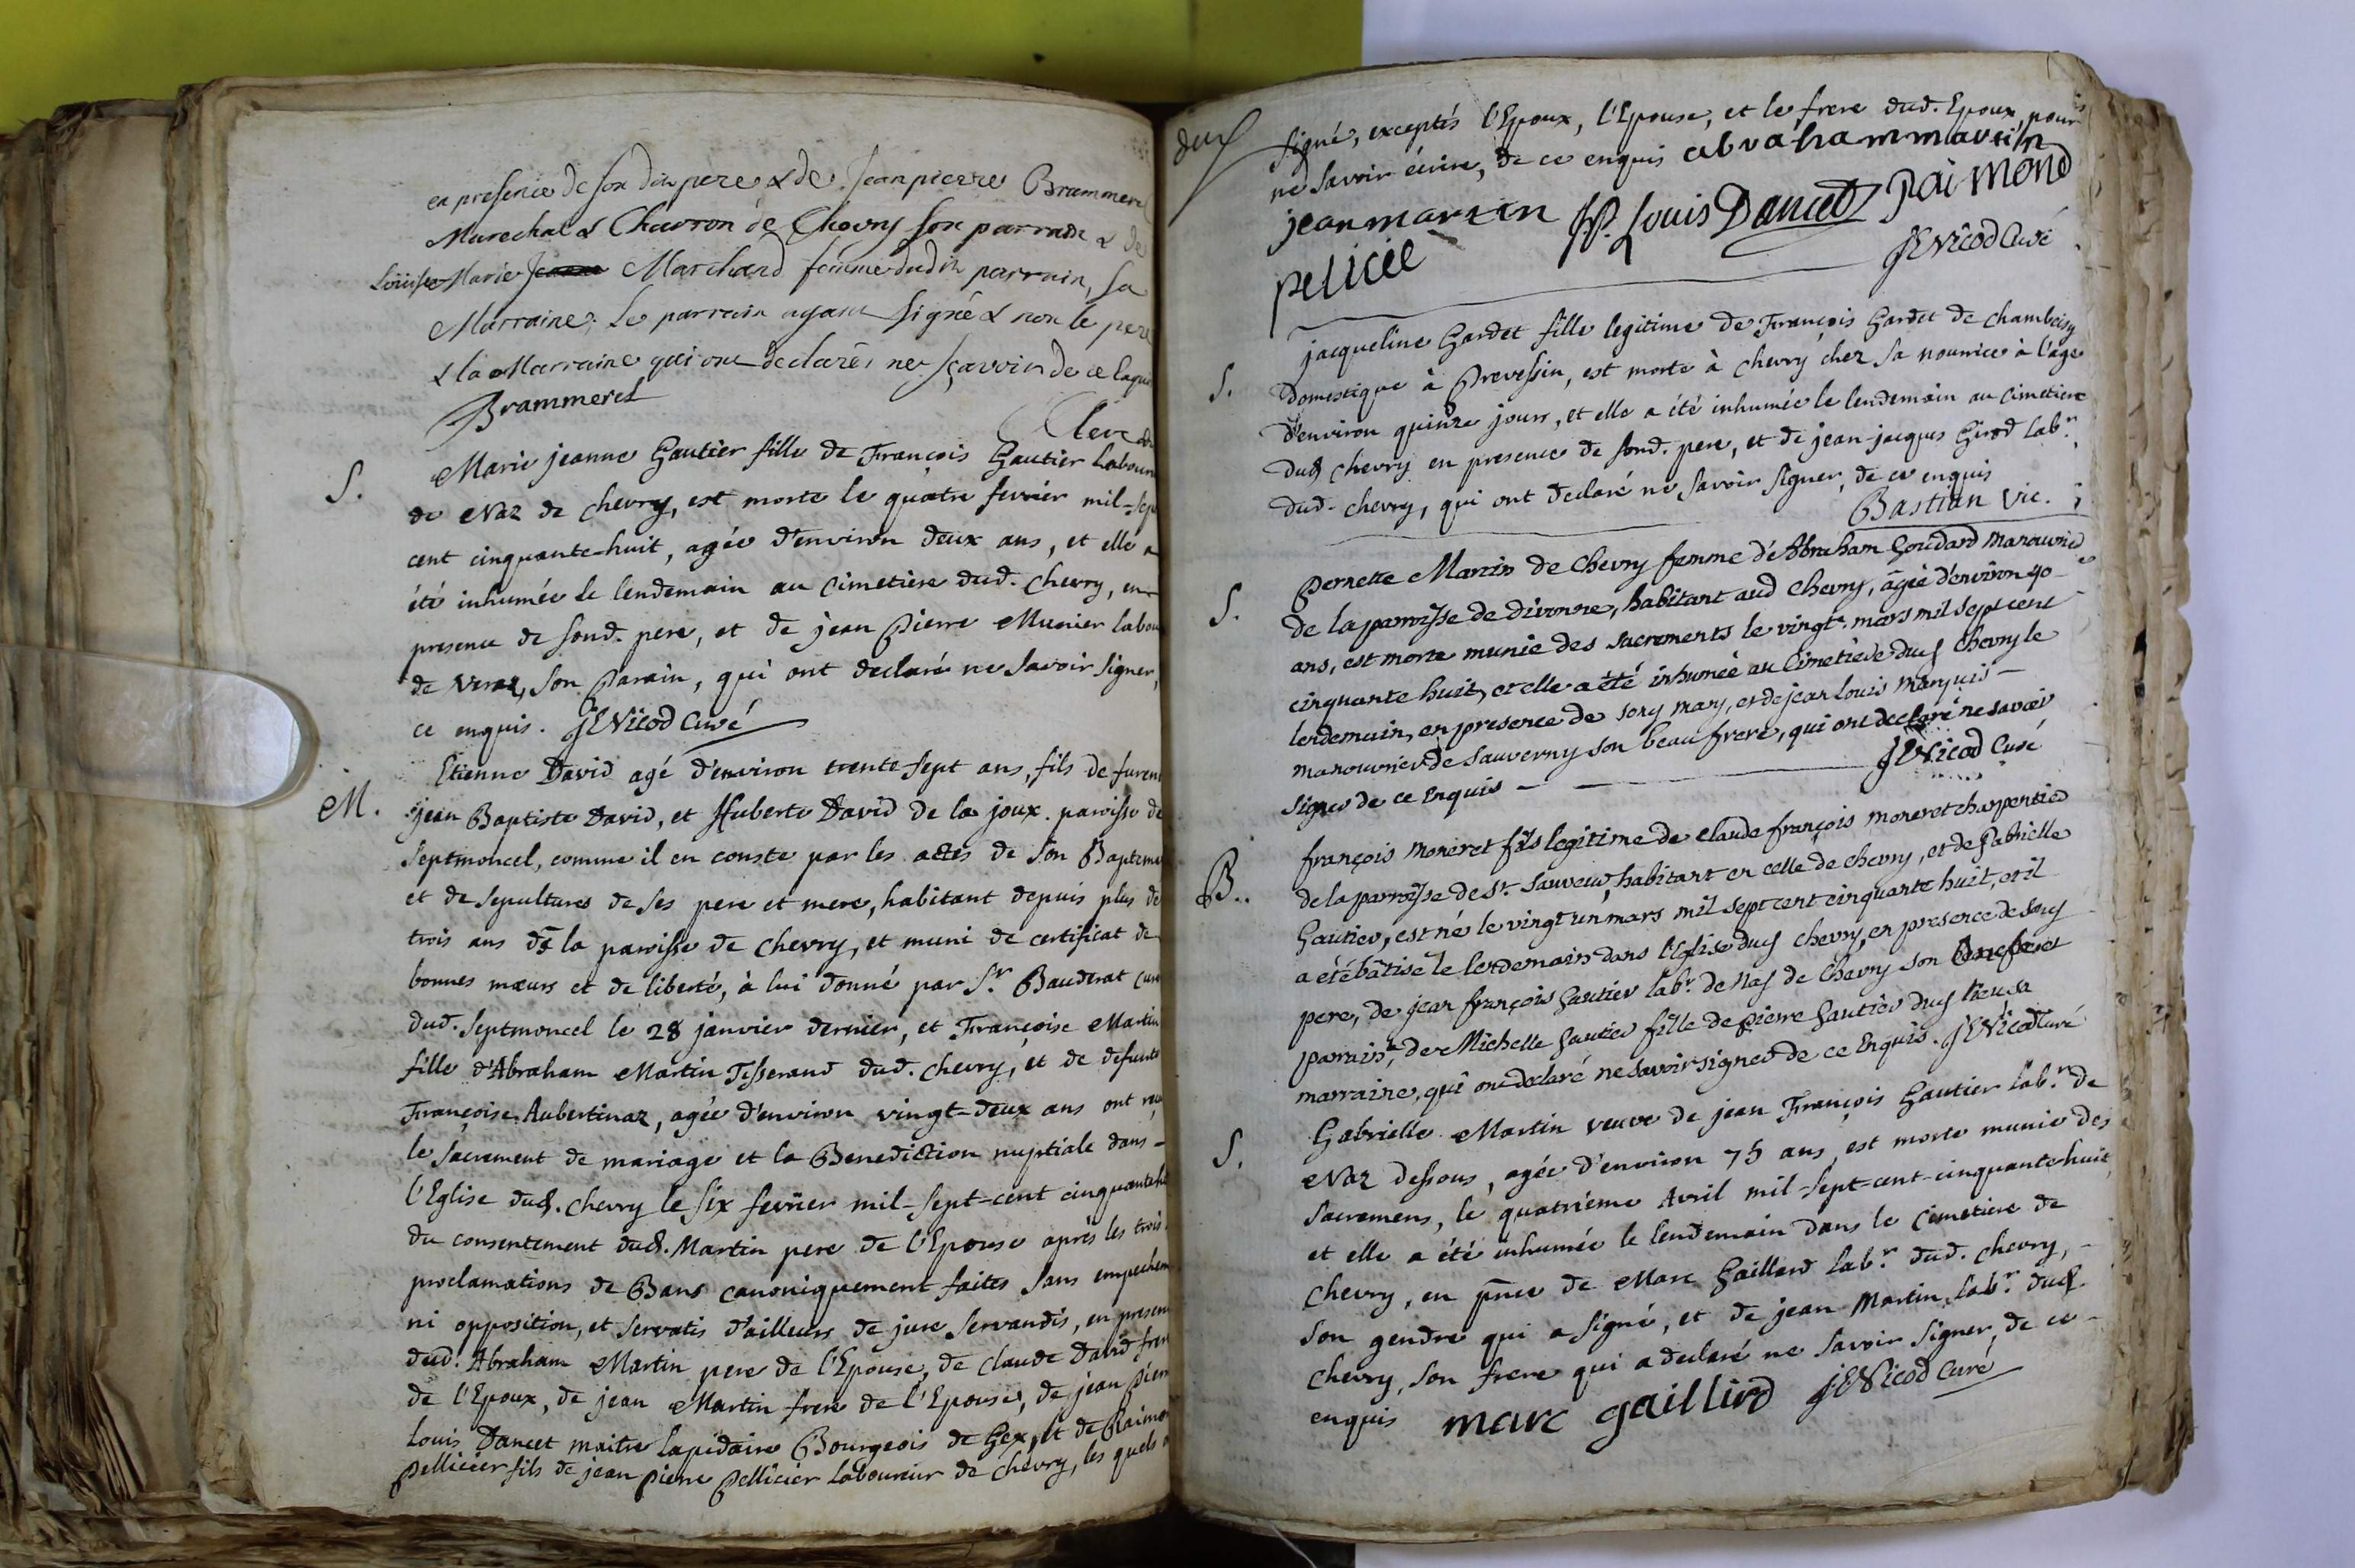 en presence de son dit pere & de Jean pierre Brammerel
Marechal & Charron de Chevry son parrain & de
Loüise Marie Marchand femme dudit parrain, sa
Marraine. Le parrain ayant signé & non le pere
& la Marraine qui ont declarés ne sçavoir de ce
Brammerel
S. Marie jeanne Gautier fille de François Gautier Labour
de Naz de chevry, est morte le quatre fevrier mil-sep
cent cinquante-huit, agée d'environ deux ans, et elle a
été inhumée le lendemain au cimetière dud. chevry, en
presence de sond. pere, et de jean Pierre Munier labou
de veraz, son Parain, qui ont declaré ne savoir signer,
ce enquis. JE Nicod Curé
M. Etienne David agé d'environ trente sept ans, fils de furent
jean Baptiste David, et Huberte David de la joux. paroisse de
Septmoncel, comme il en conste par les actes de son Bapteme
et de sepultures de ses pere et mere, habitant depuis plus de
trois ans ds la paroisse de chevry, et muni de certificat de
bonnes mœurs et de liberté, à lui donné par Sr. Bauderat Curé
dud. Septmoncel le 28 janvier dernier, et Françoise Martin
fille d'Abraham Martin Tisserand dud. chevry, et de defunte
Françoise Aubertinaz, agée d'environ vingt-deux ans ont reçu
le sacrement de mariage et la Benediction nuptiale dans -
l'Eglise dud. chevry le six fevrier mil-sept-cent cinquante h
du consentement dud. Martin pere de l'Epouse après les trois
proclamations de Bans canoniquement faites sans empechem
ni opposition, et servatis d'ailleurs de jure servandis, en presen
dud. Abraham Martin pere de l'Epouse, de claude David frere
de l'Epoux, de jean Martin frere de l'Epouse, de jean Pierr
Louis Dancet maitre lapidaire Bourgeois de Gex, et de Raimo
Pellicier fils de jean pierre Pellicier Laboureur de chevry, les quels
signé, exceptés l'Epoux, l'Epouse, et le frere dud. Epoux, pour
ne savoir écrire, de ce enquis abraham martin
jean martin JP. Louis Dancet Raimond
pelicié JE Nicod Curé
S. jacqueline Gardet fille legitime de François Gardet de chambeisy
domestique à Prevessin, est morte à chevry chez sa nourrice à l'age
d'environ quinze jours, et elle a été inhumée le lendemain au cimetiere
dud chevry en presence de sond. pere, et de jean-jacques Girod Labr.
dud. chevry, qui ont declaré ne savoir signer, de ce enquis
Bastian vic.
S. Pernette Martin de Chevry femme d'Abraham Goudard manouvrier
de la parroisse de divonne, habitant aud Chevry, âgée d'environ 40
ans, est morte munie des sacrements le vingt mars mil sept cent
cinquante huit, et elle a été inhumée au Cimetière dud Chevry le
lendemain, en presence de son mary, et de jean Louis Marquis —
manouvrier de Sauverny son beau frere, qui ont declaré ne savoir
signer de ce Enquis — JE Nicod Curé
B. françois moneret fils legitime de claude françois moneret charpentier
de la parroisse de St. Sauveur, habitant en celle de chevry, et de Gabrielle
Gautier, est né le vingt un mars mil sept cent cinquante huit, et il
a été bâtisé le lendemain dans l'Eglise dud chevry, en presence de son
pere, de jean françois Gautier labr. de Nas de Chevry son
parrain, de Michelle Gautier fille de pierre Gautier dud lieu sa
marraine, qui ont declaré ne savoir signer de ce Enquis. JE Nicod Curé
S. Gabrielle Martin veuve de jean François Gautier labr. de
Naz dessous, agée d'environ 75 ans, est morte munie des
sacremens, le quatrième Avril mil-sept-cent-cinquante huit,
et elle a été inhumée le lendemain dans le cimetiere de
chevry, en pnce de Marc Gaillard labr. dud. chevry, -
son gendre qui a signé, et de jean Martin, labr. dud.
chevry, son frere qui a declaré ne savoir signer, de ce -
enquis marc gaillird JE Nicod Curé